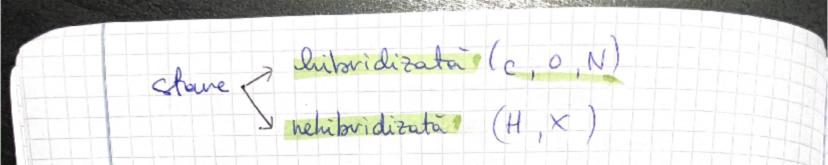 hibridizată (C, O, N)
stare
nehibridizată (H, X)